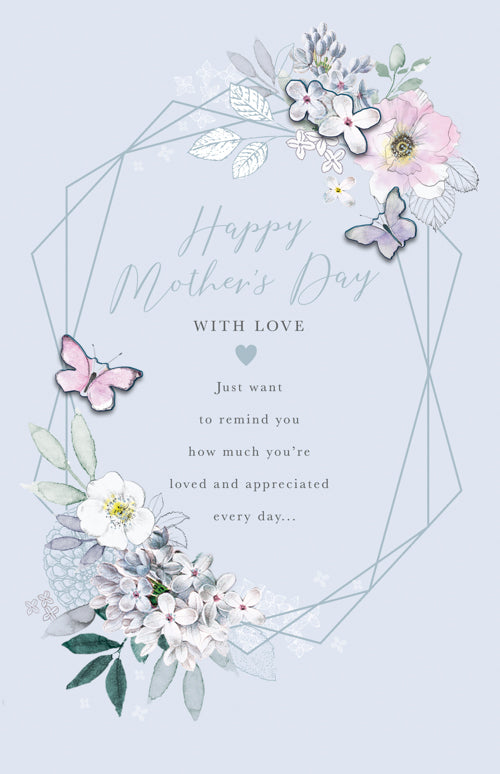 Happy
Mother's Day
WITH LOVE
Just want
to remind you
how much you're
loved and appreciated
every day...